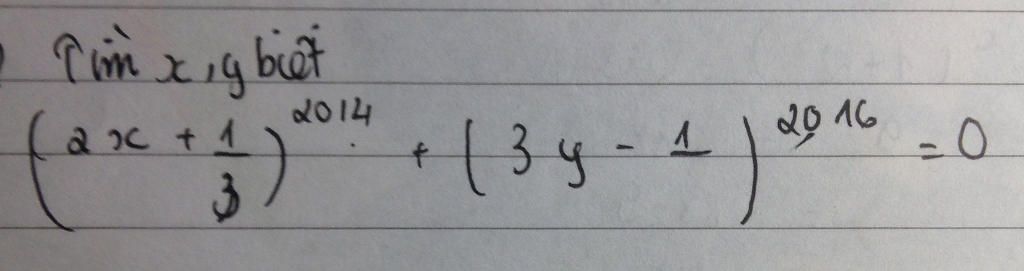 Tìm x, y biết
(2x + 1/3)^2014 + (3y - 1)^2016 = 0